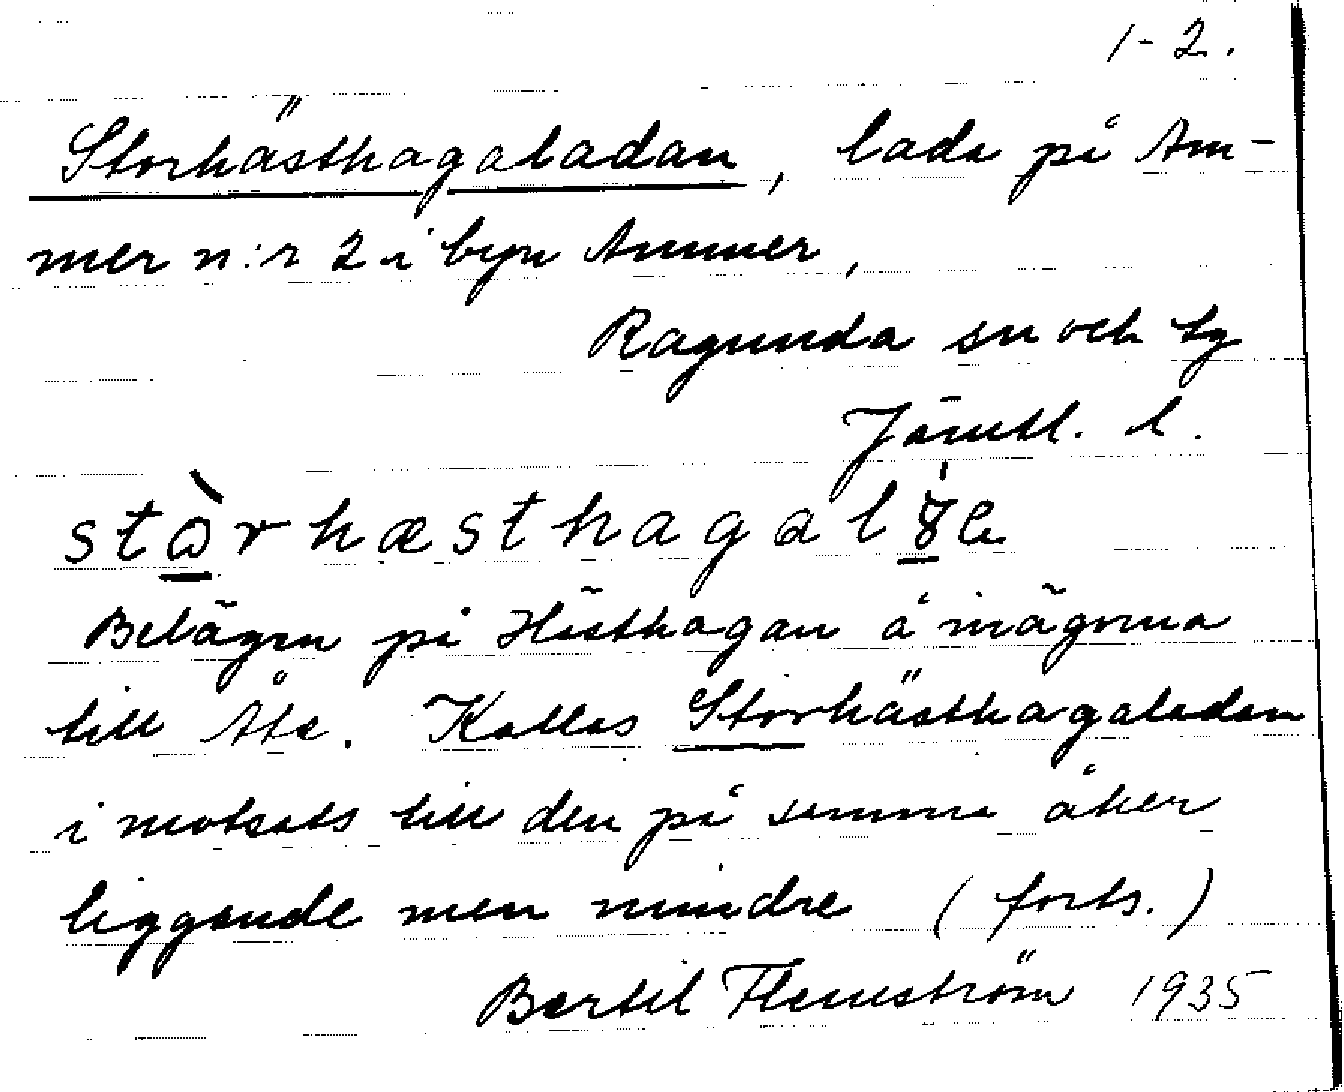 1-2.
Storhästhagaladan, lada på Am-
mer n:r 2 i byn Ammer,
Ragunda sn och tg
Jämtl. l.
Belägen på Hästhagan å inägorna
till Åte. Kallas Storhästhagaladan
i motsats till den på samma åker
liggande men mindre (forts.)
Bertil Flemström 1935